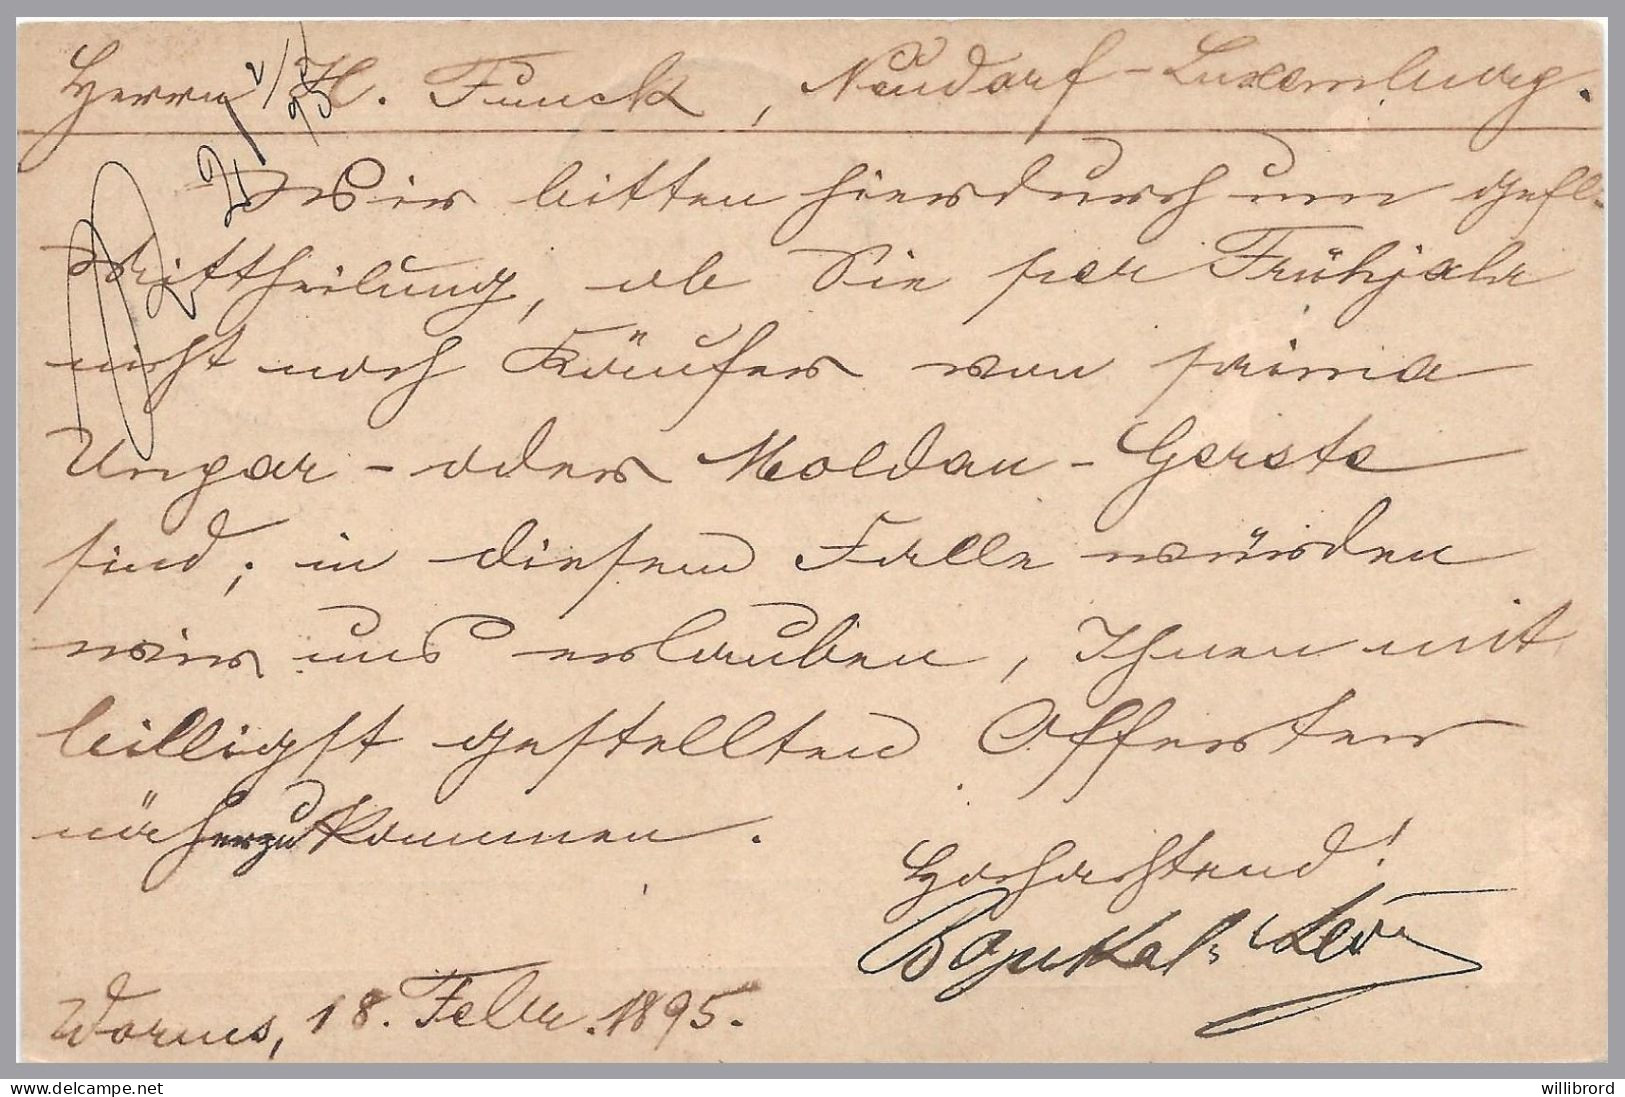 Herrn H. Funck, Neudorf-Luxemburg.
Wir bitten hierdurch um gefl.
Mittheilung, ob Sie per Frühjahr
nicht noch Käufer von prima
Ungar- oder Moldau-Gerste
sind; in diesem Falle würden
wir uns erlauben, Ihnen mit
billigst gestellten Offerten
näherzukommen.
Hochachtend!
Worms, 18. Febr. 1895.
willibrord